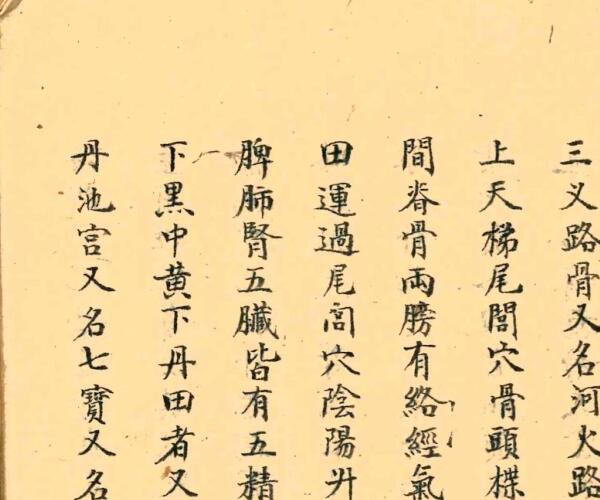 三义路骨又名河火路
上天梯尾閭穴骨頭楪
間脊骨兩膀有絡經氣
田運過尾閭穴陰陽升
脾肺腎五臟皆有五精
下黑中黄下丹田者又
丹池宫又名七寶又名